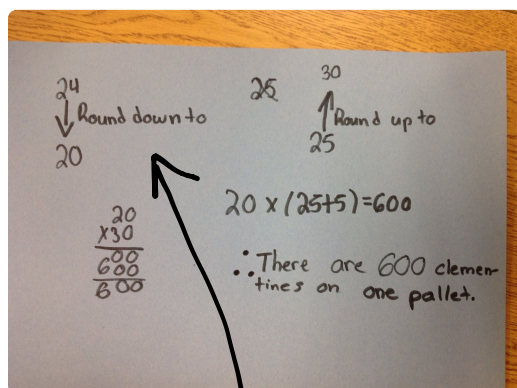 24
Round down to
20
25
30
Round up to
25
20
x30
600
600
600
20 x (25+5)=600
∴ There are 600 clemen-
tines on one pallet.